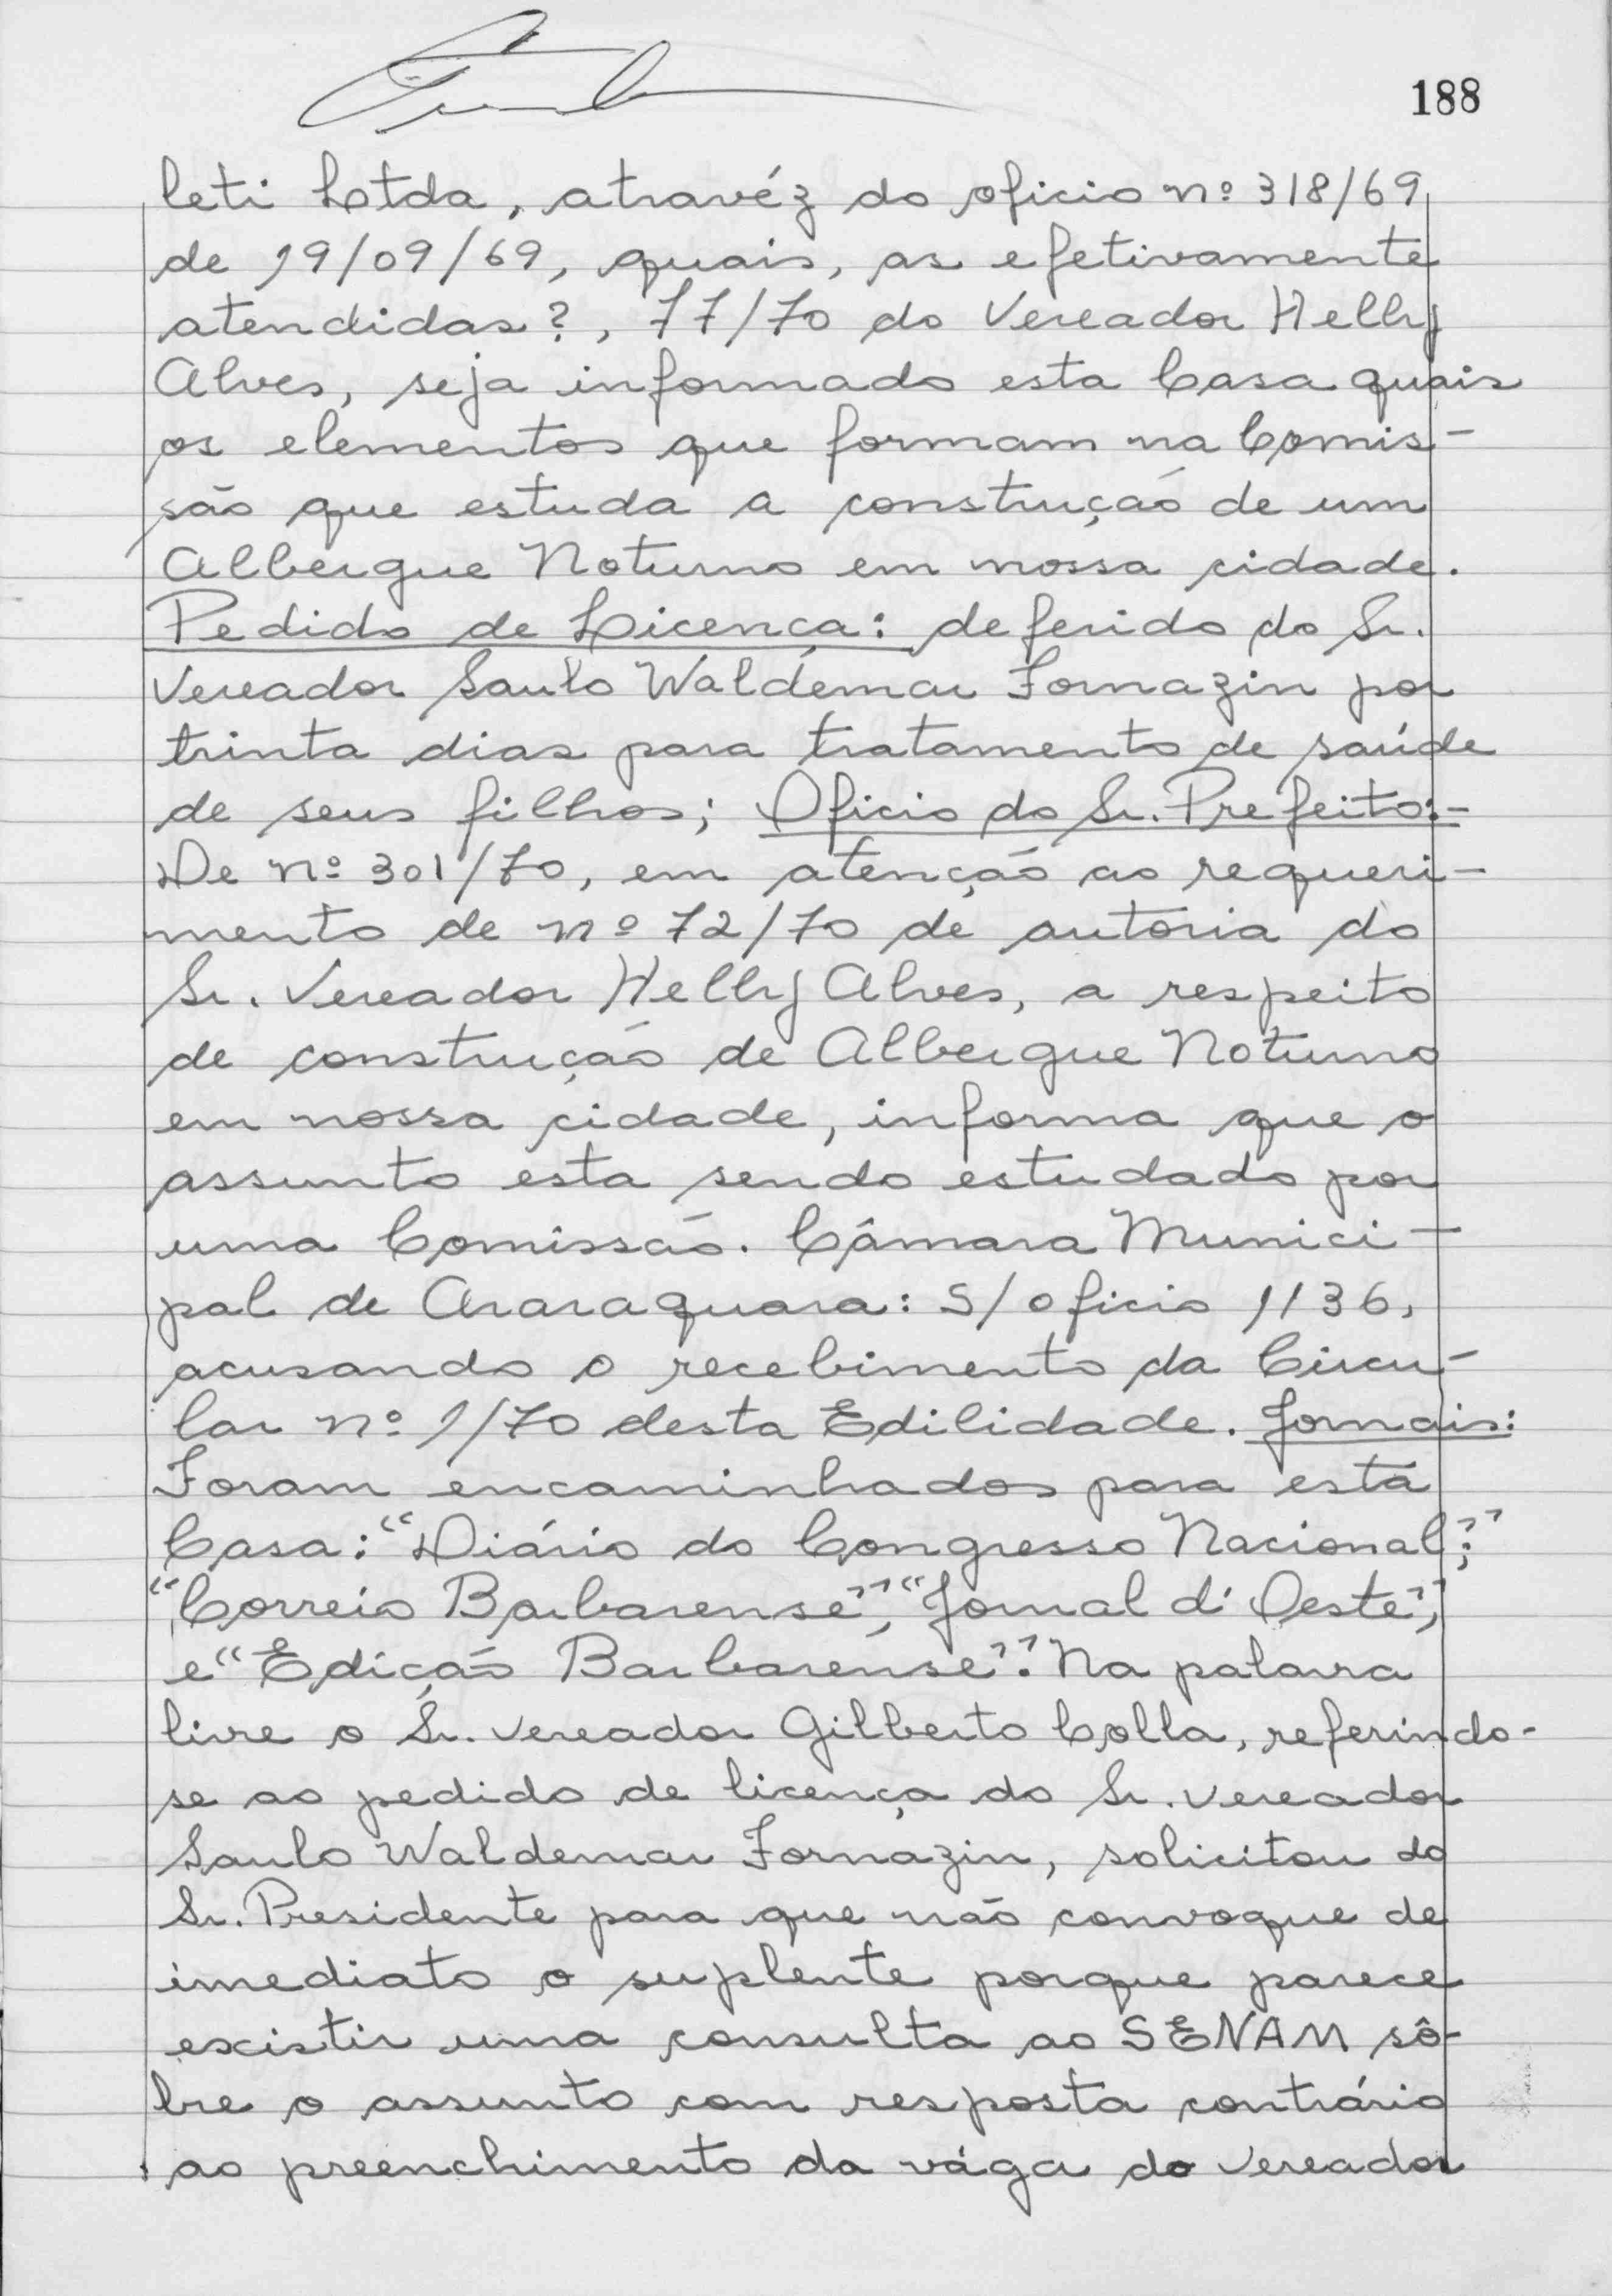 188
leti Ltda, atravéz do oficio nº 318/69
de 19/09/69, quais, as efetivamente
atendidas?, 77/70 do Vereador Helly
Alves, seja informado esta Casa quais
os elementos que formam na Comis-
são que estuda a construção de um
Albergue Noturno em nossa cidade.
Pedido de Licença: deferido do Sr.
Vereador Saulo Waldemar Fornazin por
trinta dias para tratamento de saúde
de seus filhos; Oficio do Sr. Prefeito:-
De nº 301/70, em atenção ao requeri-
mento de nº 72/70 de autoria do
Sr. Vereador Helly Alves, a respeito
de construção de Albergue Noturno
em nossa cidade, informa que o
assunto esta sendo estudado por
uma Comissão. Câmara Munici-
pal de Araraquara: S/oficio 1136,
acusando o recebimento da Circu-
lar nº 1/70 desta Edilidade. Jornais:
Foram encaminhados para esta
Casa: "Diário do Congresso Nacional;"
"Correio Barbarense", "Jornal d'Oeste",
e "Edição Barbarense". Na palavra
livre o Sr. Vereador Gilberto Colla, referindo-
se ao pedido de licença do Sr. Vereador
Saulo Waldemar Fornazin, solicitou do
Sr. Presidente para que não convoque de
imediato o suplente porque parece
existir uma consulta ao SENAM sô-
bre o assunto com resposta contrário
ao preenchimento da vága do Vereador